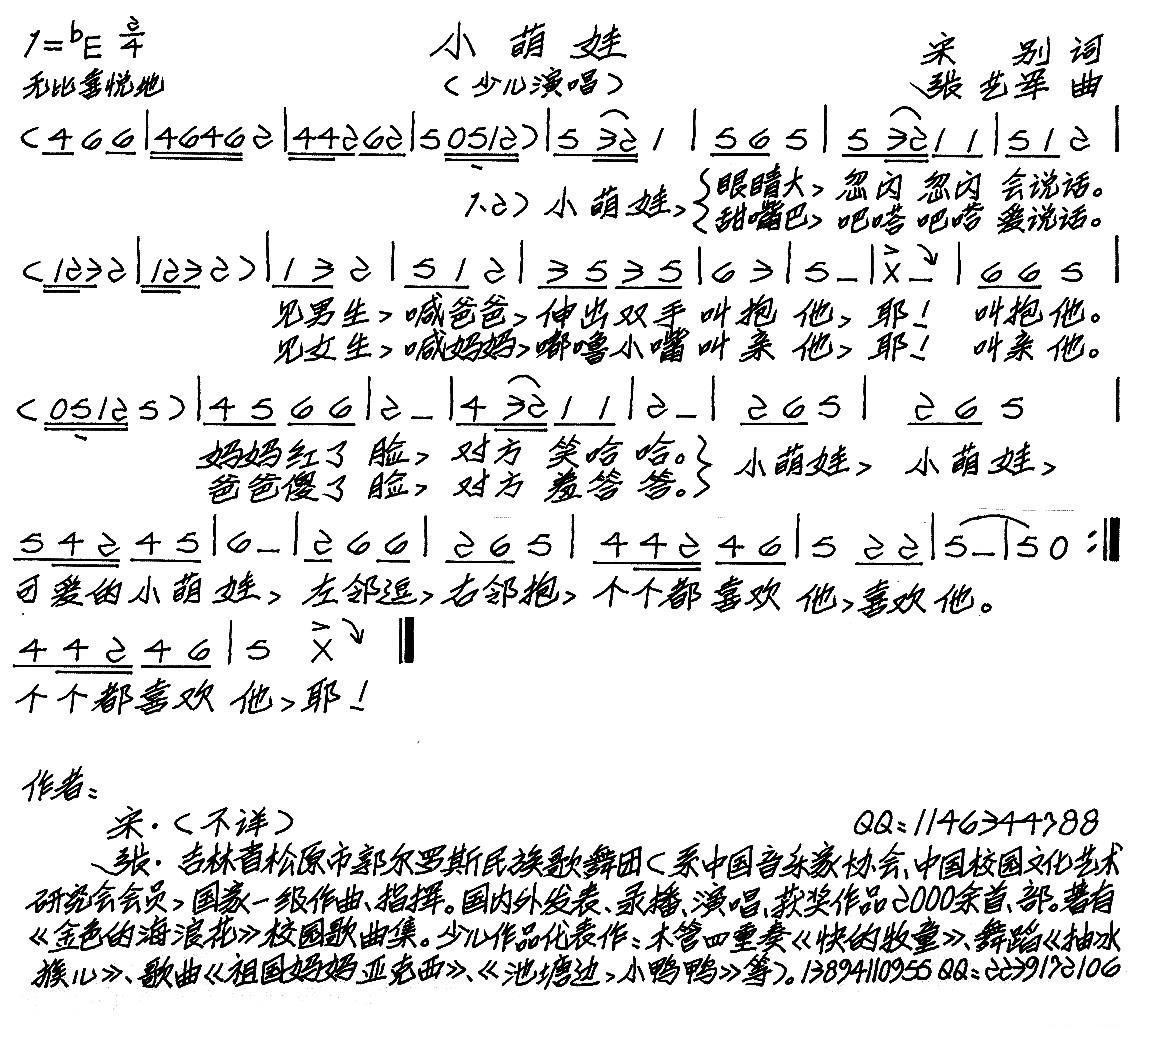 1=bE 2/4 小萌娃 宋 别 词
无比喜悦地 (少儿演唱) 张艺军 曲
(4 6 6|4 6 4 6 2|4 4 2 6 2|5 0 5 1 2)|5 3 2 1|5 6 5|5 3 2 1 1|5 1 2|
眼睛大, 忽闪 忽闪 会说话。
1.2) 小萌娃,
甜嘴巴, 吧嗒 吧嗒 爱说话。
(1 2 3 2|1 2 3 2)|1 3 2|5 1 2|3 5 3 5|6 3|5 –|X –|6 6 5|
见男生, 喊爸爸, 伸出双手叫抱 他, 耶! 叫抱他。
见女生, 喊妈妈, 嘟噜小嘴叫亲 他, 耶! 叫亲他。
(0 5 1 2 5)|4 5 6 6|2 –|4 3 2 1 1|2 –|2 6 5|2 6 5|
妈妈红了 脸, 对方 笑哈 哈。 小萌娃, 小萌娃,
爸爸傻了 脸, 对方 羞答 答。
5 4 2 4 5|6 –|2 6 6|2 6 5|4 4 2 4 6|5 2 2|5 –|5 0 :‖
可爱的小萌 娃, 左邻逗, 右邻抱, 个个都喜欢 他, 喜欢他。
4 4 2 4 6|5 X ‖
个个都喜欢 他, 耶!
作者:
宋·(不详) QQ:1146344788
张·吉林省松原市郭尔罗斯民族歌舞团(系中国音乐家协会、中国校园文化艺术
研究会会员, 国家一级作曲、指挥。国内外发表、录播、演唱、获奖作品2000余首、部。著有
《金色的海浪花》校园歌曲集。少儿作品代表作:木管四重奏《快的牧童》、舞蹈《抽冰
猴儿》、歌曲《祖国妈妈亚克西》、《池塘边,小鸭鸭》等)。13894110955 QQ:2239172106